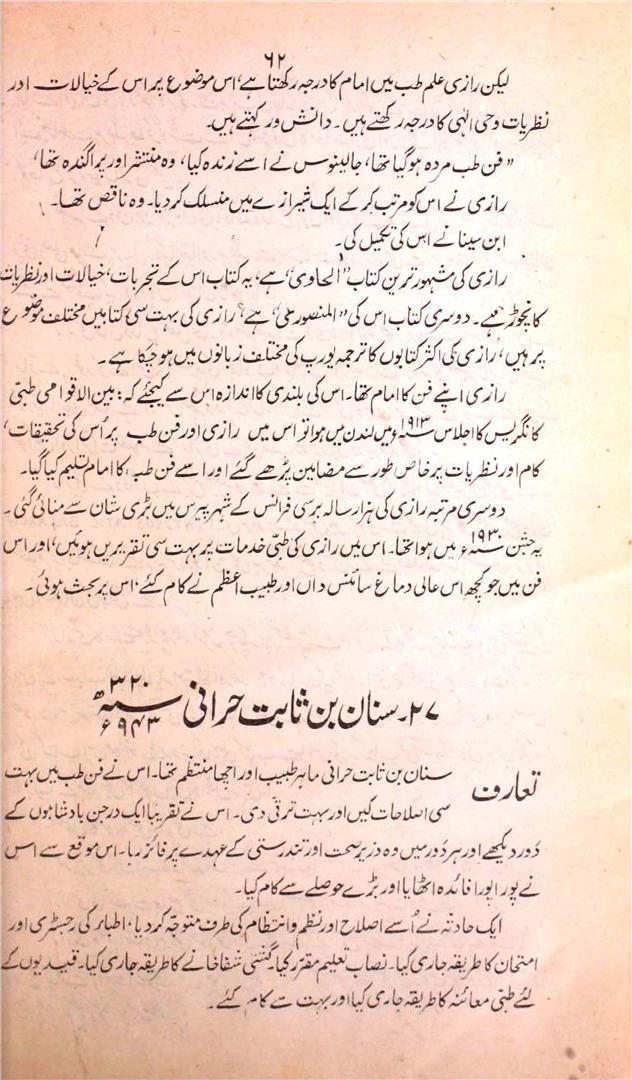 ۶۲
لیکن رازی علم طب میں امام کا درجہ رکھتا ہے، اس موضوع پر اس کے خیالات اور
نظریات وحی الٰہی کا درجہ رکھتے ہیں۔ دانش ور کہتے ہیں۔
”فن طب مردہ ہوگیا تھا، جالینوس نے اسے زندہ کیا، وہ منتشر اور پراگندہ تھا،
رازی نے اس کو مرتب کرکے ایک شیرازے میں منسلک کردیا۔ وہ ناقص تھا۔
ابن سینا نے اس کی تکمیل کی۔
رازی کی مشہور ترین کتاب ”الحاوی“ ہے، یہ کتاب اس کے تجربات، خیالات اور نظریات
کا نچوڑ ہے۔ دوسری کتاب اس کی ”المنصوری“ ہے، رازی کی بہت سی کتابیں مختلف موضوع
پر ہیں، رازی کی اکثر کتابوں کا ترجمہ یورپ کی مختلف زبانوں میں ہوچکا ہے۔
رازی اپنے فن کا امام تھا۔ اس کی بلندی کا اندازہ اس سے کیجئے کہ: بین الاقوامی طبی
کانگریس کا اجلاس ۱۹۱۳ء میں لندن میں ہوا تو اس میں رازی اور فن طب پر اُس کی تحقیقات،
کام اور نظریات پر خاص طور سے مضامین پڑھے گئے اور اسے فن طب، کا امام تسلیم کیا گیا۔
دوسری مرتبہ رازی کی ہزار سالہ برسی فرانس کے شہر پیرس میں بڑی شان سے منائی گئی۔
یہ جشن ۱۹۳۰ء میں ہوا تھا۔ اس میں رازی کی طبی خدمات پر بہت سی تقریریں ہوئیں، اور اس
فن میں جو کچھ اس عالی دماغ سائنس داں اور طبیب اعظم نے کام کئے، اس پر بحث ہوئی۔
۲۷۔ سنان بن ثابت حرانی سنہ ۳۲۰ھ ۹۴۳ء
تعارف سنان بن ثابت حرانی ماہر طبیب اور اچھا منتظم تھا۔ اس نے فن طب میں بہت
سی اصلاحات کیں اور بہت ترقی دی۔ اس نے تقریباً ایک درجن بادشاہوں کے
دَور دیکھے اور ہر دَور میں وہ وزیر صحت اور تندرستی کے عہدے پر فائز رہا۔ اس موقع سے اس
نے پورا پورا فائدہ اٹھایا اور بڑے حوصلے سے کام کیا۔
ایک حادثہ نے اُسے اصلاح اور نظم و انتظام کی طرف متوجہ کردیا، اطبار کی رجسٹری اور
امتحان کا طریقہ جاری کیا۔ نصاب تعلیم مقرر کیا۔ گشتی شفاخانے کا طریقہ جاری کیا۔ قیدیوں کے
لئے طبی معائنہ کا طریقہ جاری کیا اور بہت سے کام کئے۔